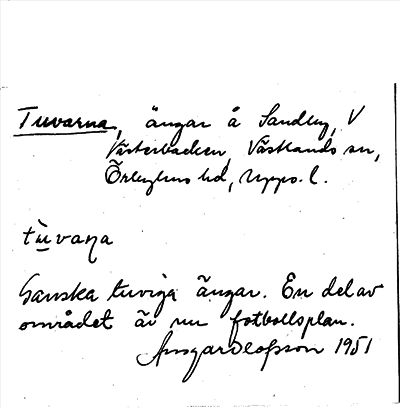 Tuvarna, ängar å Sandby, V
Västerbacken, Västlands sn,
Örbyhus hd, Upps. l.
tùvaṇa
Ganska tuviga ängar. En del av
området är nu fotbollsplan.
Ansgar Olofsson 1951